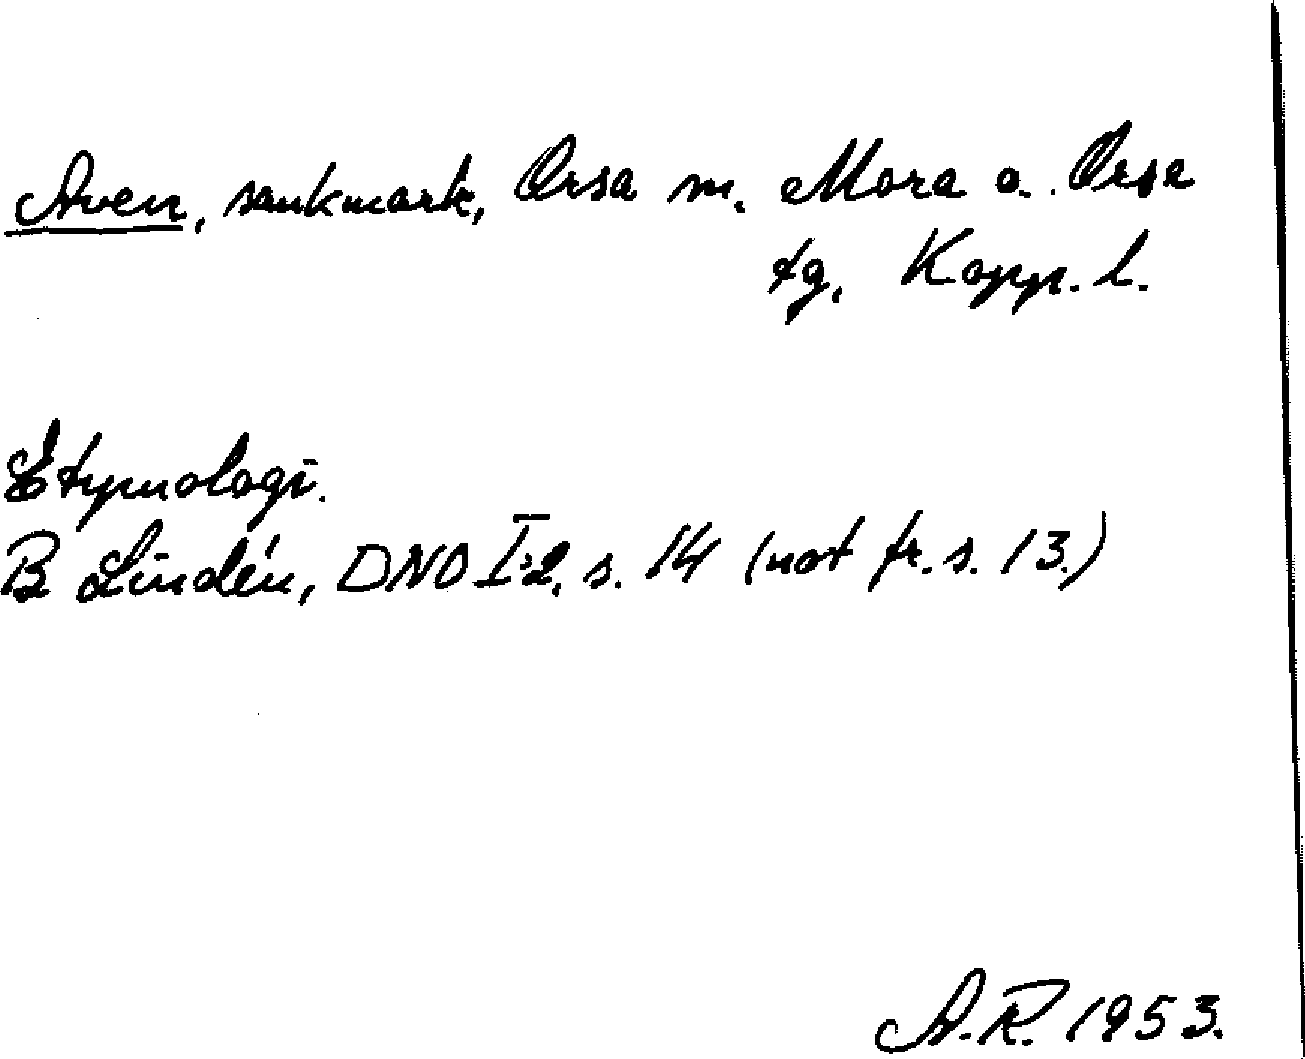 Aven, sankmark, Orsa sn. Mora o. Orsa
tg, Kopp. l.
Etymologi.
B Lindén, DNO I:2, s. 14 (not fr. s. 13.)
A.R. 1953.